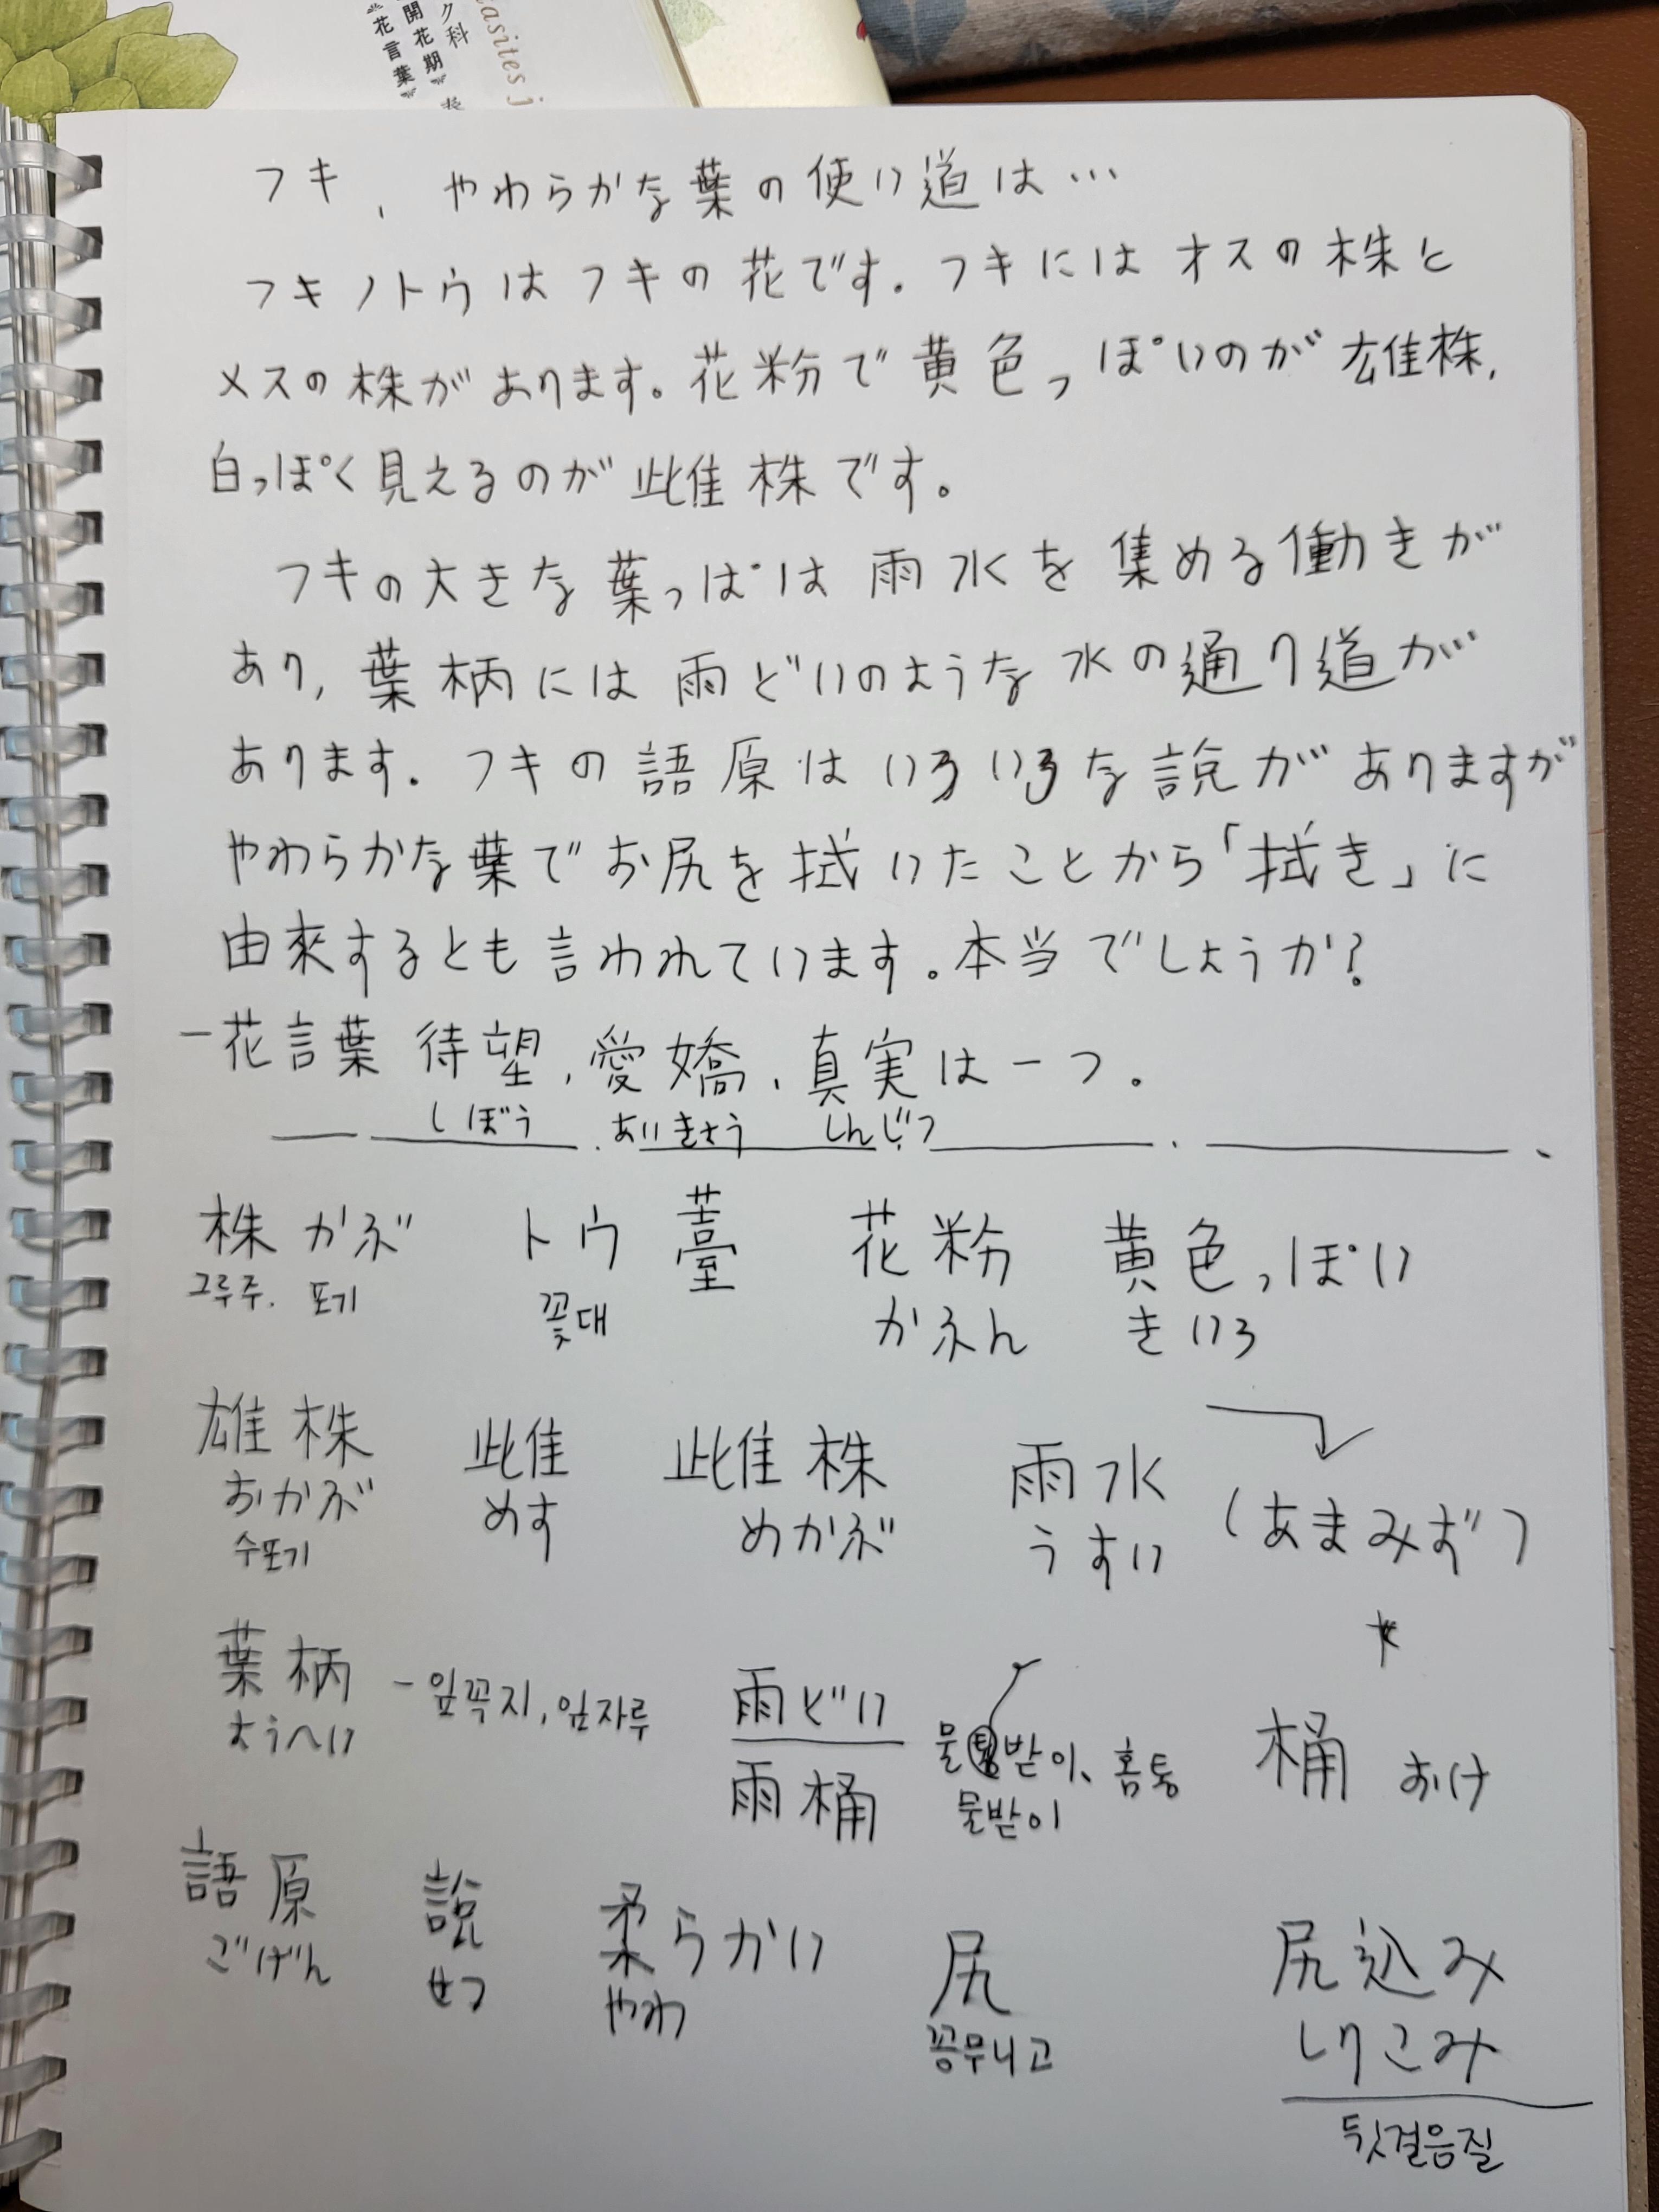 asites j
ク科
開花期
花言葉
フキ、やわらかな葉の使い道は…
フキノトウはフキの花です。フキにはオスの株と
メスの株があります。花粉で黄色っぽいのが雄株,
白っぽく見えるのが雌株です。
フキの大きな葉っぱは雨水を集める働きが
あり,葉柄には雨どいのような水の通り道が
あります。フキの語原はいろいろな説がありますが
やわらかな葉でお尻を拭いたことから「拭き」に
由来するとも言われています。本当でしょうか?
-花言葉 待望,愛嬌、真実は一つ。
しぼう . あいきょう しんじつ
株 かぶ トウ 薹 花粉 黄色っぽい
그루주. 포기 꽃대 かふん きいろ
雄株 雌 雌株 雨水 (あまみず)
おかぶ めす めかぶ うすい
수포기
葉柄 -잎꼭지,잎자루 雨どい 물받이、홈통 桶 おけ
ようへい 雨桶 물받이
語原 説 柔らかい 尻 尻込み
ごげん せつ やわ 꽁무니고 しりこみ
뒷걸음질